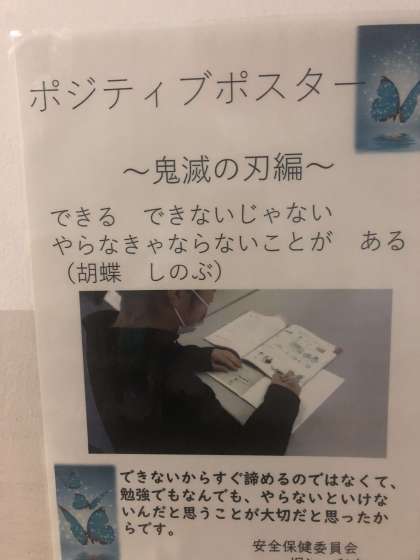 ポジティブポスター
～鬼滅の刃編～
できる　できないじゃない
やらなきゃならないことが　ある
（胡蝶　しのぶ）
できないからすぐ諦めるのではなくて、
勉強でもなんでも、やらないといけな
いんだと思うことが大切だと思ったか
らです。
安全保健委員会